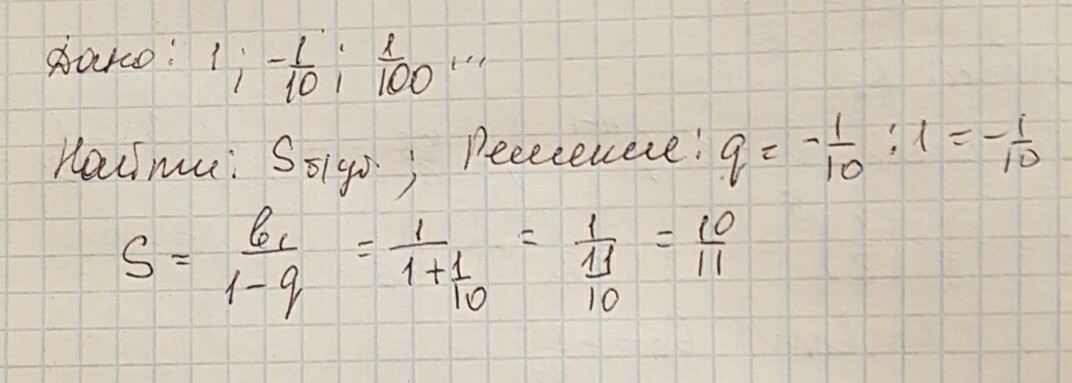 Дано: 1; -1/10; 1/100 ...
Найти: S б/уб.; Решение: q = -1/10 : 1 = -1/10
S = b₁/(1-q) = 1/(1+1/10) = 1/(11/10) = 10/11